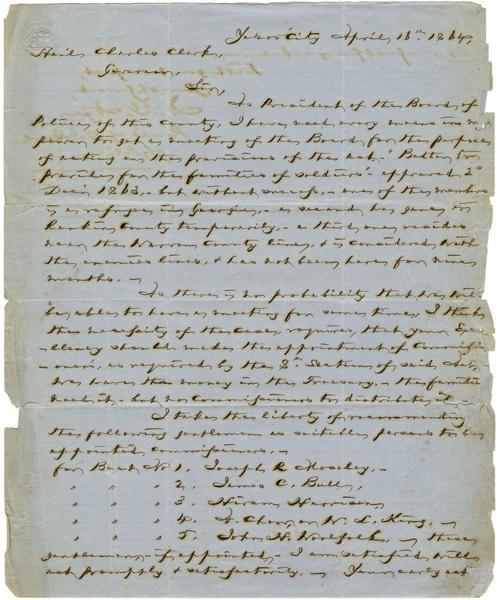 Yazoo City April 16th 1864,
Hon. Charles Clark,
Governor,
Sir,
As President of the Board of
Police of this County, I have used every means in my
power to get a meeting of the Board for the purpose
of acting on the provisions of the act "Better to
provide for the families of soldiers" approved 2d
Decr 1863, - but without success, - one of the members
is a refugee in Georgia, - a second has gone to
Rankin County temporarily, - a third one resides
near the Warren County line, & is considered with
the enemies lines, & has not been here for nine
months. -
As there is no probability that we will
be able to have a meeting for some time, I think
the necessity of the case, requires that your Exce-
llency should make the appointment of Commissi-
-oners, as required by the 8th Section of said Act,
We have the money in the Treasury, - the families
need it, - but no commissioners to distribute it -
I take the liberty of recommending
the following gentlemen as suitable persons to be
appointed commissioners, -
for Beat No 1. Joseph R Moseley, -
" " " 2. James C. Bull,
" " " 3. Hiram Harrison
" " " 4. W. L. King, -
" " " 5. John H. Woolfolk, - these
gentlemen - if appointed - I am satisfied will
act promptly & satisfactorily. - Your early act